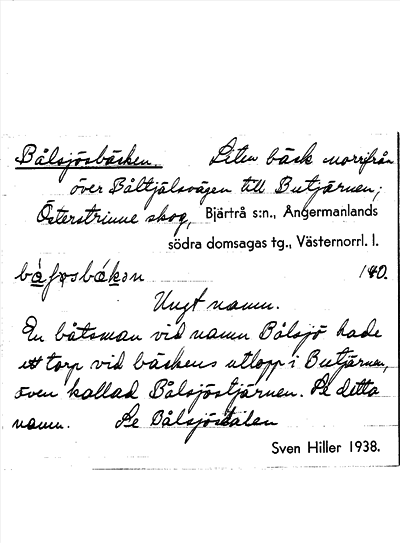 Bålsjösbäcken. Liten bäck norrifrån
över Båltjälsvägen till Butjärnen;
Österstrinne skog, Bjärtrå s:n., Ångermanlands
södra domsagas tg., Västernorrl. l.
140.
Ungt namn.
En båtsman vid namn Bålsjö hade
ett torp vid bäckens utlopp i Butjärnen,
även kallad Bålsjöstjärnen. Se detta
namn. Se Bålsjöstälen
Sven Hiller 1938.